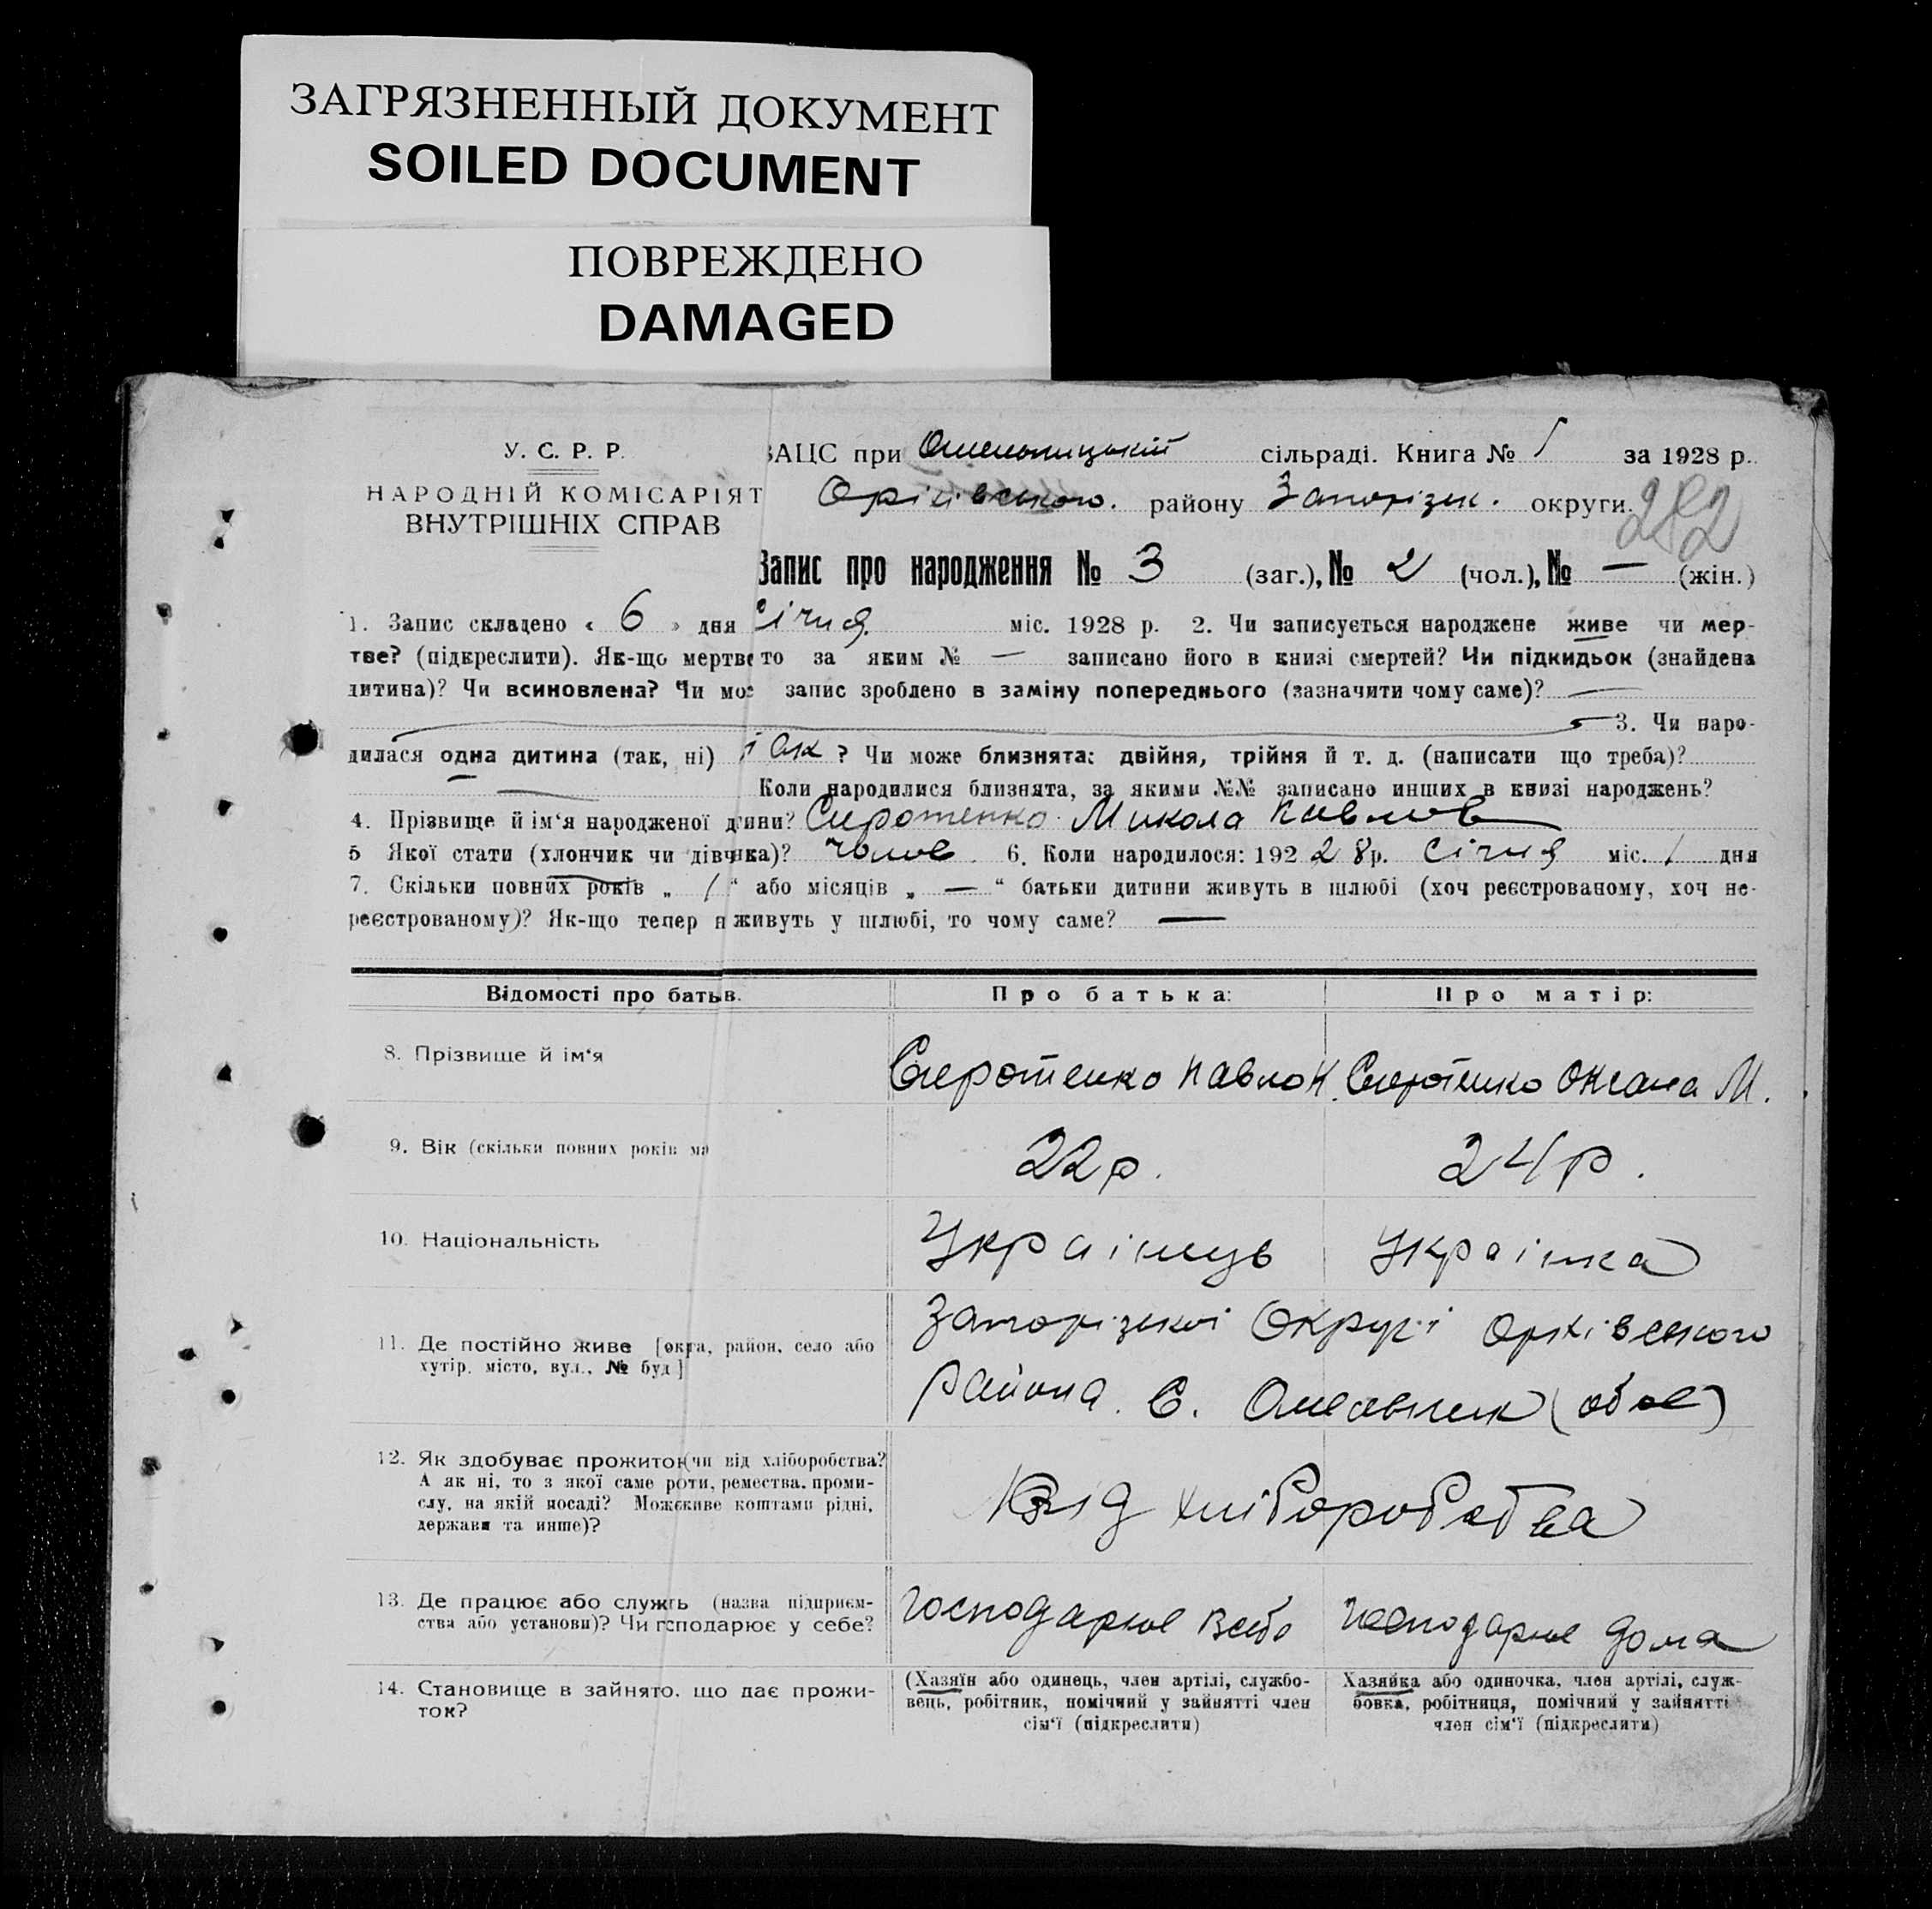 ЗАГРЯЗНЕННЫЙ ДОКУМЕНТ
SOILED DOCUMENT
ПОВРЕЖДЕНО
DAMAGED
У. С. Р. Р.
НАРОДНІЙ КОМІСАРІЯТ
ВНУТРІШНІХ СПРАВ
ЗАЦС при Омельницькій сільраді. Книга № 1 за 1928 р.
Оріхівського. району Запорізьк. округи.
282
Запис про народження № 3 (заг.), № 2 (чол.), № — (жін.)
1. Запис складено « 6 » дня Січня. міс. 1928 р. 2. Чи записується народжене живе чи мер-
тве? (підкреслити). Як-що мертве то за яким № — записано його в книзі смертей? Чи підкидьок (знайдена
дитина)? Чи всиновлена? Чи мо запис зроблено в заміну попереднього (зазначити чому саме)? —
3. Чи наро-
дилася одна дитина (так, ні) так ? Чи може близнята: двійня, трійня й т. д. (написати що треба)?
— Коли народилися близнята, за якими №№ записано инших в книзі народжень?
4. Прізвище й ім'я народженої дтини? Сиротенко Микола Павлов
5 Якої стати (хлопчик чи дівчика)? чолов. 6. Коли народилося: 192 28р. Січня міс. 1 дня
7. Скільки повних років „ 1 “ або місяців „ — “ батьки дитини живуть в шлюбі (хоч реєстрованому, хоч не-
реєстрованому)? Як-що тепер н живуть у шлюбі, то чому саме? —
Відомості про батьв. Про батька: Про матір:
8. Прізвище й ім'я Сиротенко Павло К. Сиротенко Оксана М.
9. Вік (скільки повних років ма 22р. 24р.
10. Національність Українець Українка
11. Де постійно живе [окга, район, село або
хутір, місто, вул., № буд] Запорізької Округи Оріхівського
района. С. Омельник (обоє)
12. Як здобуває прожиток(чи від хліборобства?
А як ні, то з якої саме роти, ремества, проми-
слу, на якій посаді? Можекиве коштами рідні,
держави та инше)?
Від хліборобства
13. Де працює або служть (назва підприєм-
ства або установи)? Чи гсподарює у себе?
господарює в себе господарює дома
14. Становище в зайнято. що дає прожи-
ток?
(Хазяїн або одинець, член артілі, службо-
вець, робітник, помічний у зайнятті член
сім'ї (підкреслити)
Хазяйка або одиночка, член артілі, служ-
бовка, робітниця, помічний у зайнятті
член сім'ї (підкреслити)